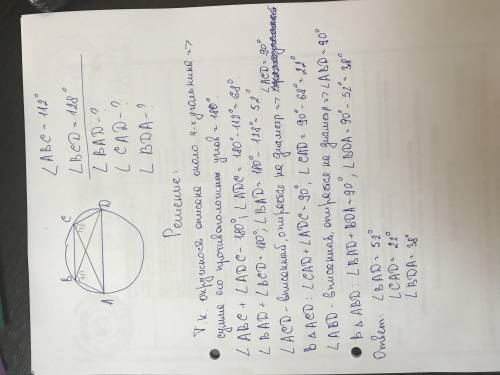 ∠ABC = 112°
∠BCD = 128°
∠BAD - ?
∠CAD - ?
∠BDA - ?
B
C
A
D
Решение:
Т.к. окружность описана около 4-х угольника =>
сумма его противоположных углов = 180°
∠ABC + ∠ADC = 180°; ∠ADC = 180° - 112° = 68°
∠BAD + ∠BCD = 180°; ∠BAD = 180° - 128° = 52°
∠ACD - вписанный, опирается на диаметр => ∠ACD = 90°
В △ACD: ∠CAD + ∠ADC = 90°, ∠CAD = 90° - 68° = 22°
∠ABD - вписанный, опирается на диаметр => ∠ABD = 90°
В △ABD: ∠BAD + BDA = 90°, ∠BDA = 90° - 52° = 38°
Ответ: ∠BAD = 52°
∠CAD = 22°
∠BDA = 38°